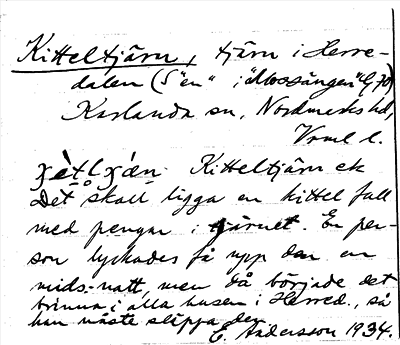 Kitteltjärn, tjärn i Herre-
dalen (S "en" i "Mossängen" Lj 70)
Karlanda sn, Nordmarks hd,
Vrml l.
Kitteltjärn ek
Det skall ligga en kittel full
med pengar i tjärnet. En per-
son lyckades få upp den en
mids.-natt, men då började det
brinna i alla husen i Herred., så
han måste släppa den
E. Andersson 1934.